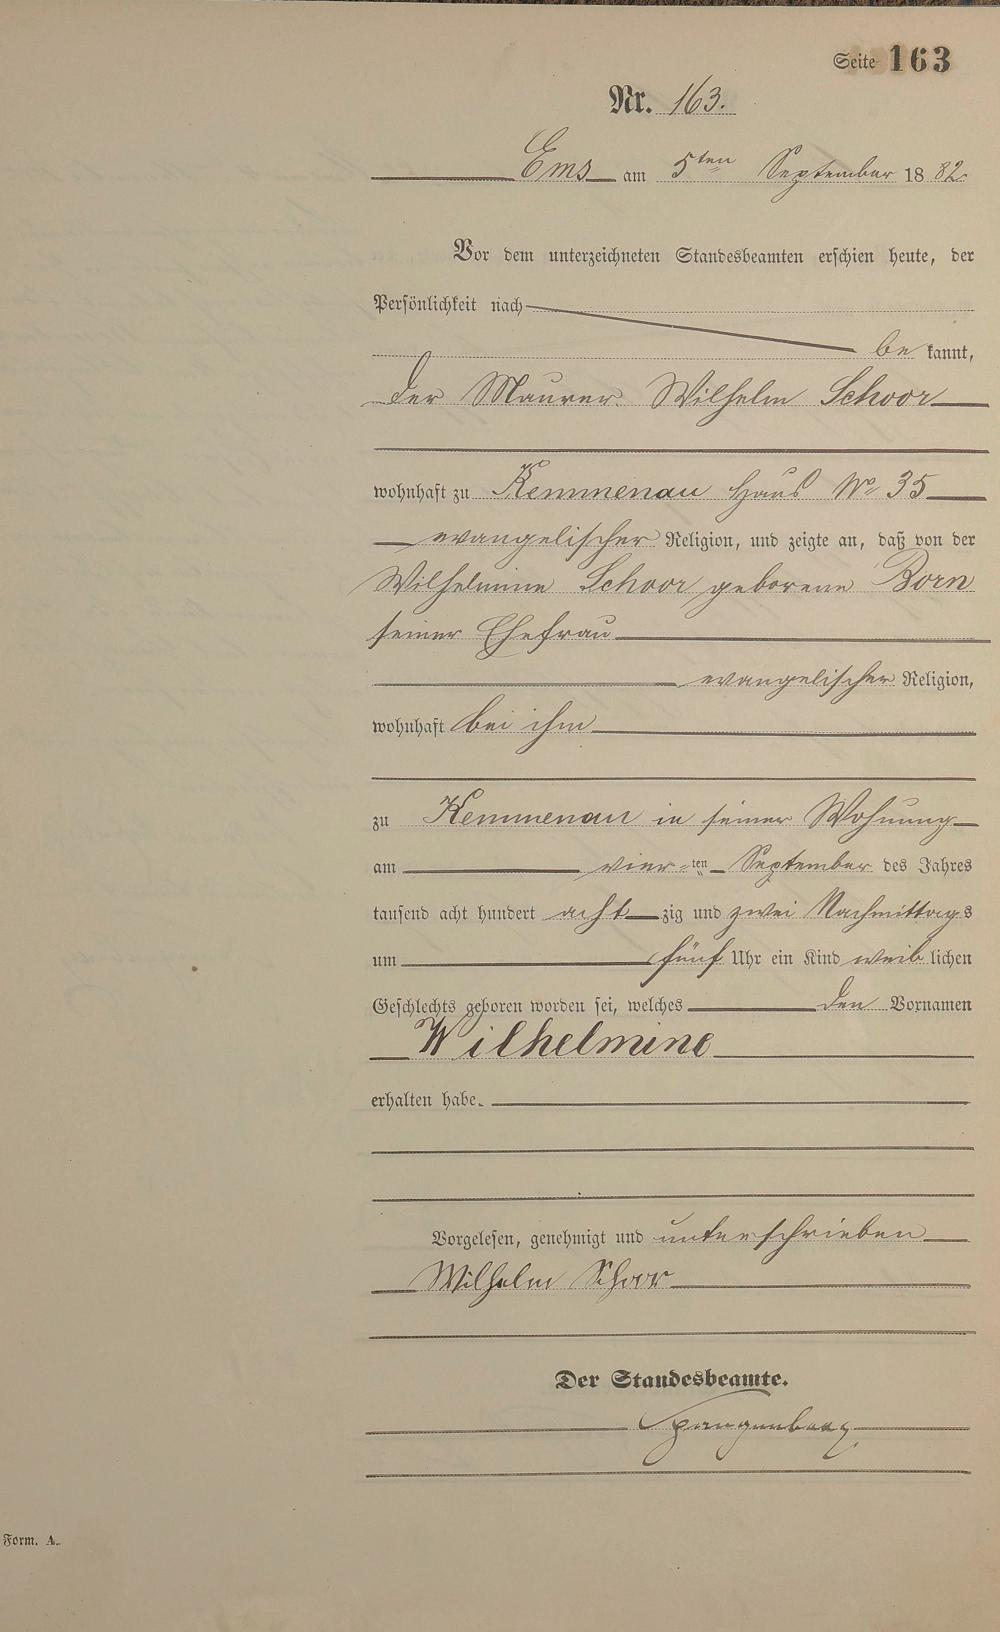 Seite 163
Nr. 163.
Ems am 5ten September 1882.
Vor dem unterzeichneten Standesbeamten erschien heute, der
Persönlichkeit nach
be kannt,
der Maurer Wilhelm Schoor
wohnhaft zu Kemmenau Haus No 35
evangelischer Religion, und zeigte an, daß von der
Wilhelmine Schoor geborene Born
seiner Ehefrau
evangelischer Religion,
wohnhaft bei ihm
zu Kemmenau in seiner Wohnung
am vier-ten September des Jahres
tausend acht hundert acht zig und zwei Nachmittags
um fünf Uhr ein Kind weib lichen
Geschlechts geboren worden sei, welches den Vornamen
Wilhelmine
erhalten habe.
Vorgelesen, genehmigt und unterschrieben
Wilhelm Schoor
Der Standesbeamte.
Spangenberg
Form. A.